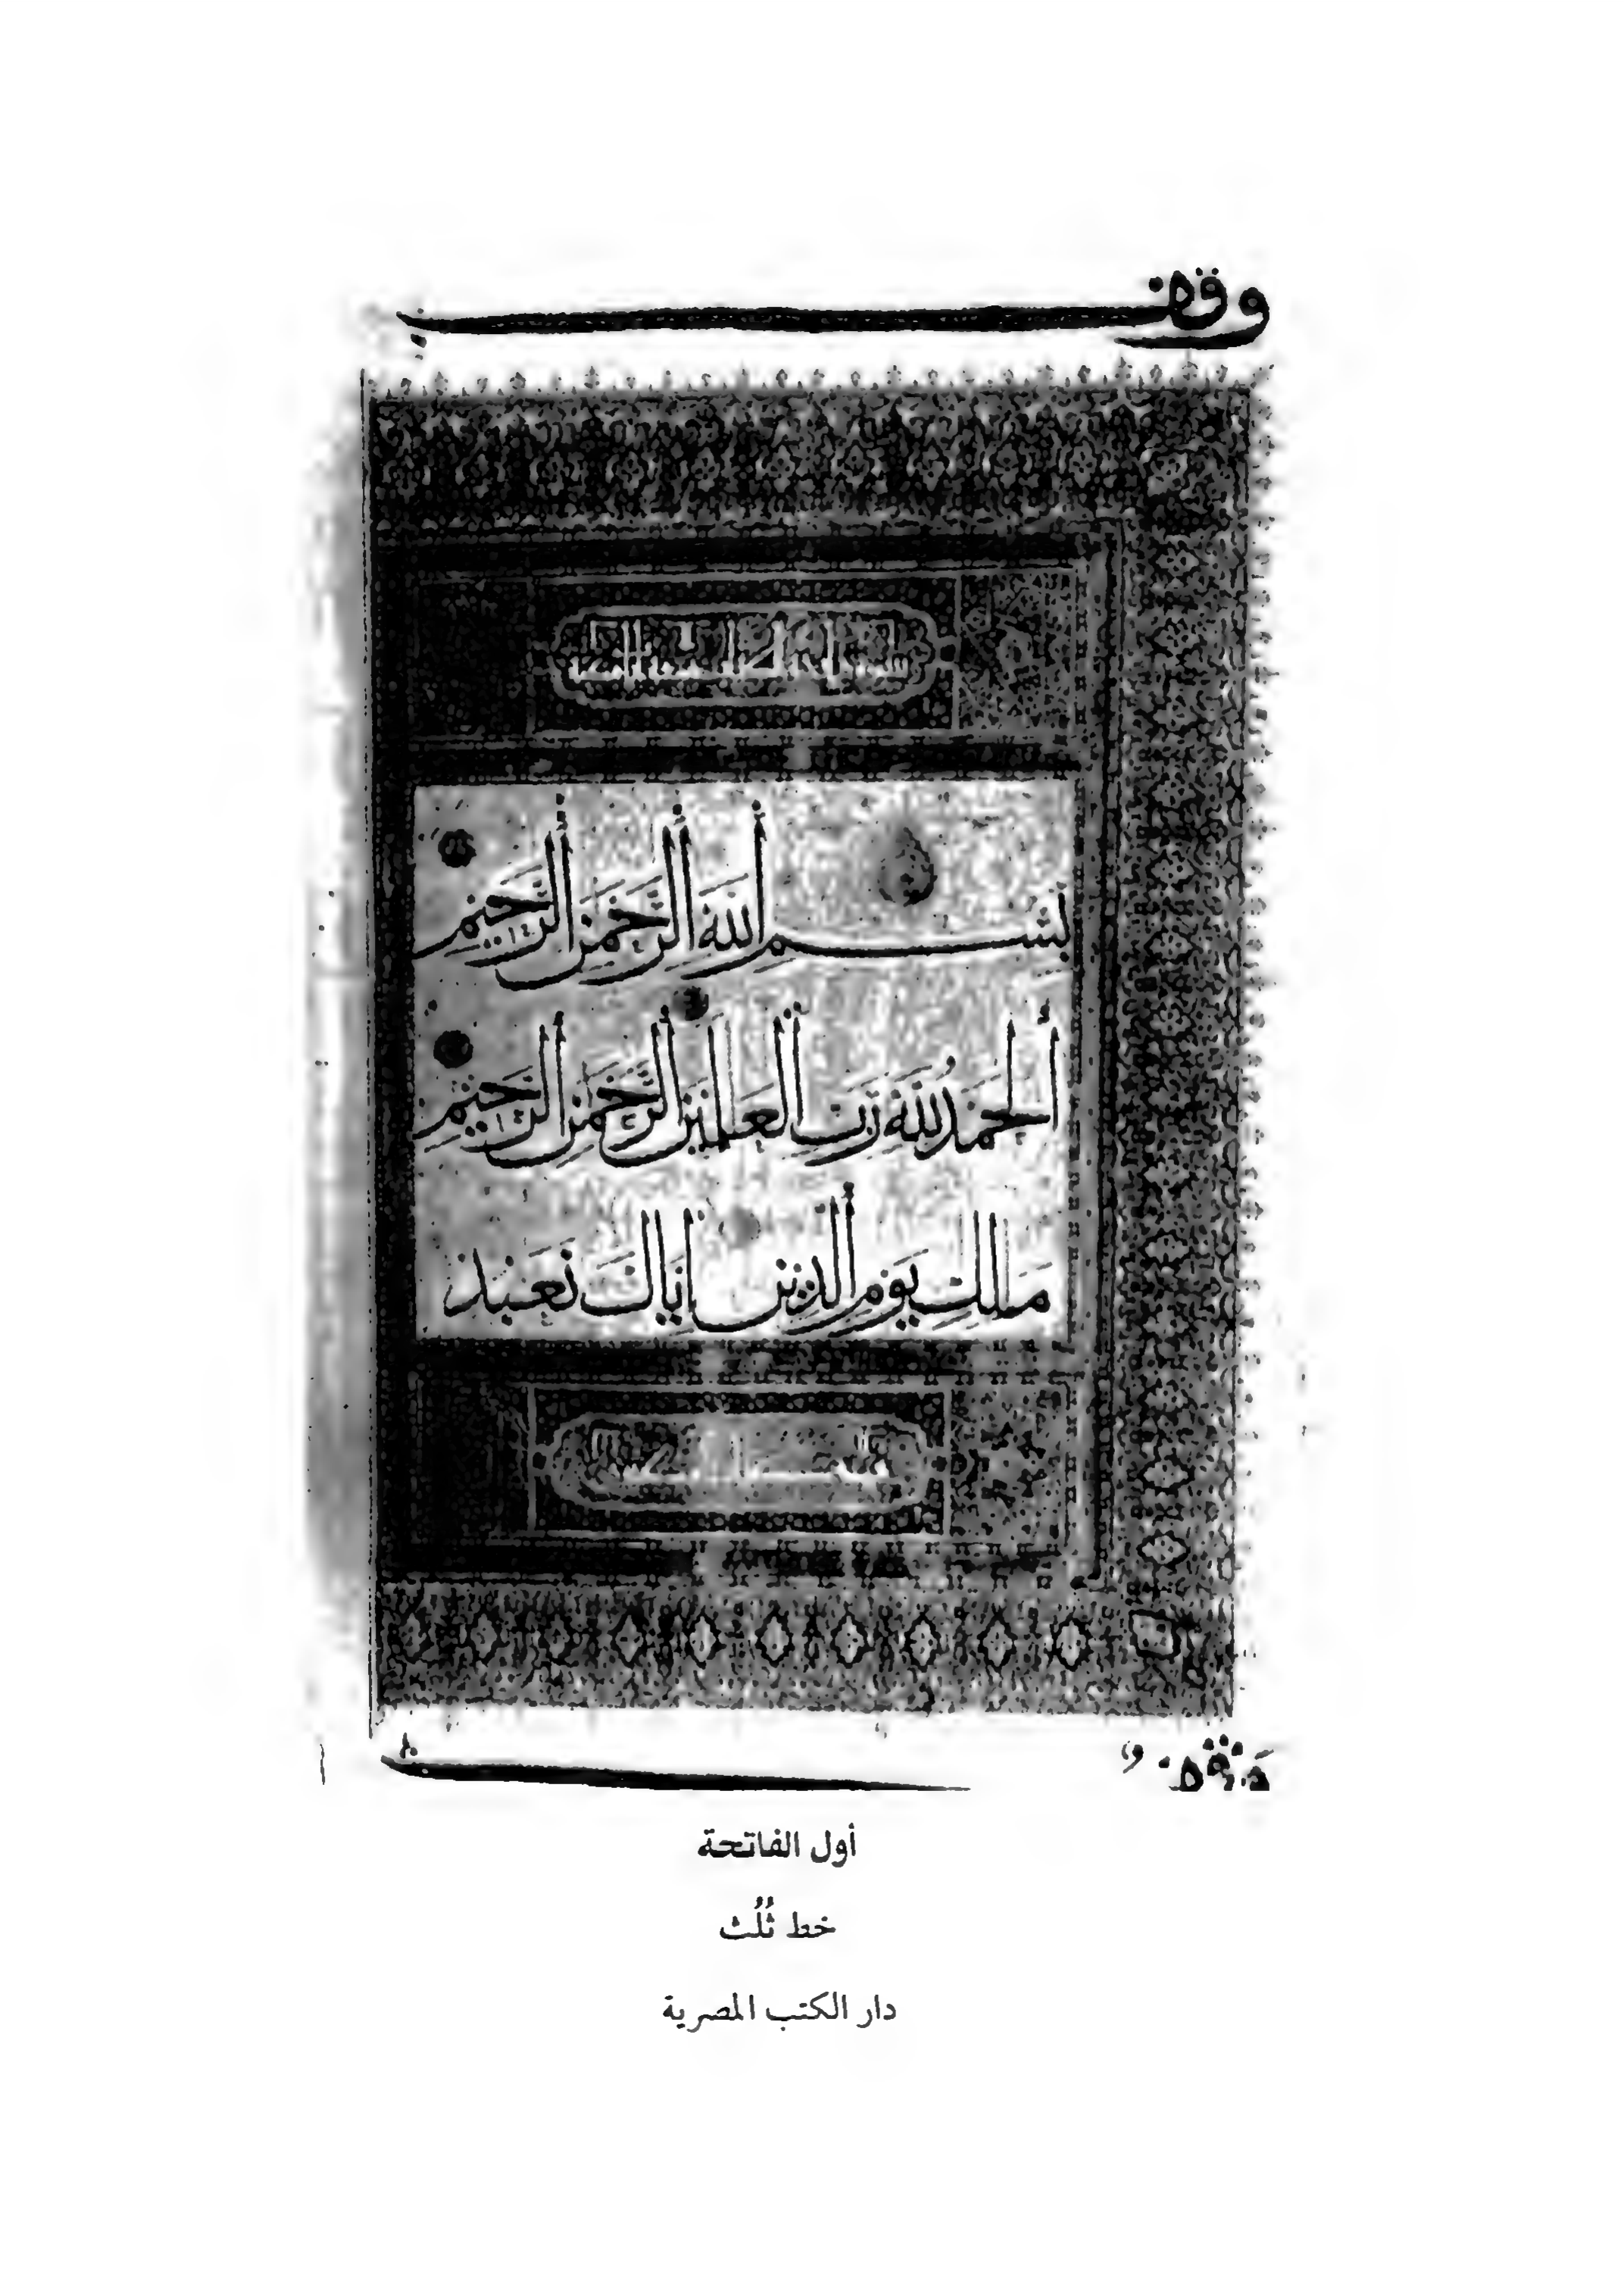 وقف
بِسْمِ ٱللَّهِ ٱلرَّحْمَٰنِ ٱلرَّحِيمِ
ٱلْحَمْدُ لِلَّهِ رَبِّ ٱلْعَٰلَمِينَ ٱلرَّحْمَٰنِ ٱلرَّحِيمِ
مَٰلِكِ يَوْمِ ٱلدِّينِ إِيَّاكَ نَعْبُدُ
أول الفاتحة
خط ثُلُث
دار الكتب المصرية